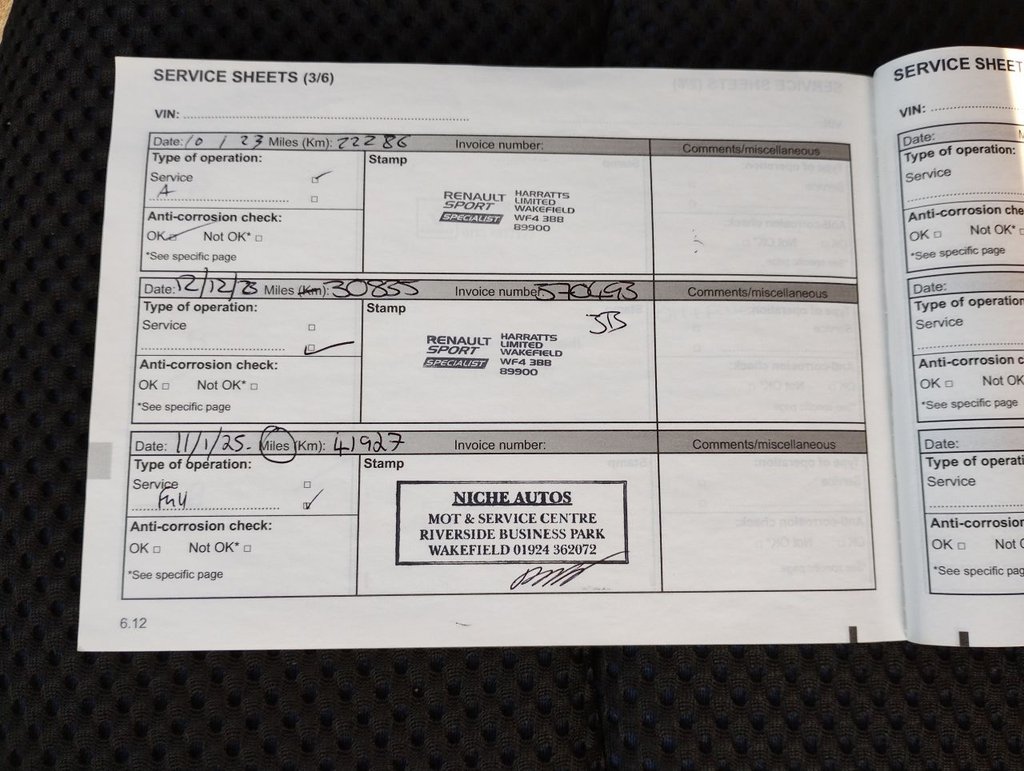 SERVICE SHEETS (3/6)
VIN:
Date: 10 / 23 Miles (Km): 22286 Invoice number: Comments/miscellaneous
Type of operation: Stamp
Service
A
RENAULT SPORT SPECIALIST
HARRATTS
LIMITED
WAKEFIELD
WF4 3BB
89900
Anti-corrosion check:
OK Not OK*
*See specific page
Date: 12/12/23 Miles (Km): 30855 Invoice number: 570493 Comments/miscellaneous
Type of operation: Stamp
Service
JB
RENAULT SPORT SPECIALIST
HARRATTS
LIMITED
WAKEFIELD
WF4 3BB
89900
Anti-corrosion check:
OK Not OK*
*See specific page
Date: 11/1/25. Miles (Km): 41927 Invoice number: Comments/miscellaneous
Type of operation: Stamp
Service
Full
NICHE AUTOS
MOT & SERVICE CENTRE
RIVERSIDE BUSINESS PARK
WAKEFIELD 01924 362072
Anti-corrosion check:
OK Not OK*
*See specific page
6.12
SERVICE SHEET
VIN:
Date:
Type of operation:
Service
Anti-corrosion che
OK Not OK*
*See specific page
Date:
Type of operation
Service
Anti-corrosion c
OK Not OK
*See specific page
Date:
Type of operati
Service
Anti-corrosion
OK Not O
*See specific pag